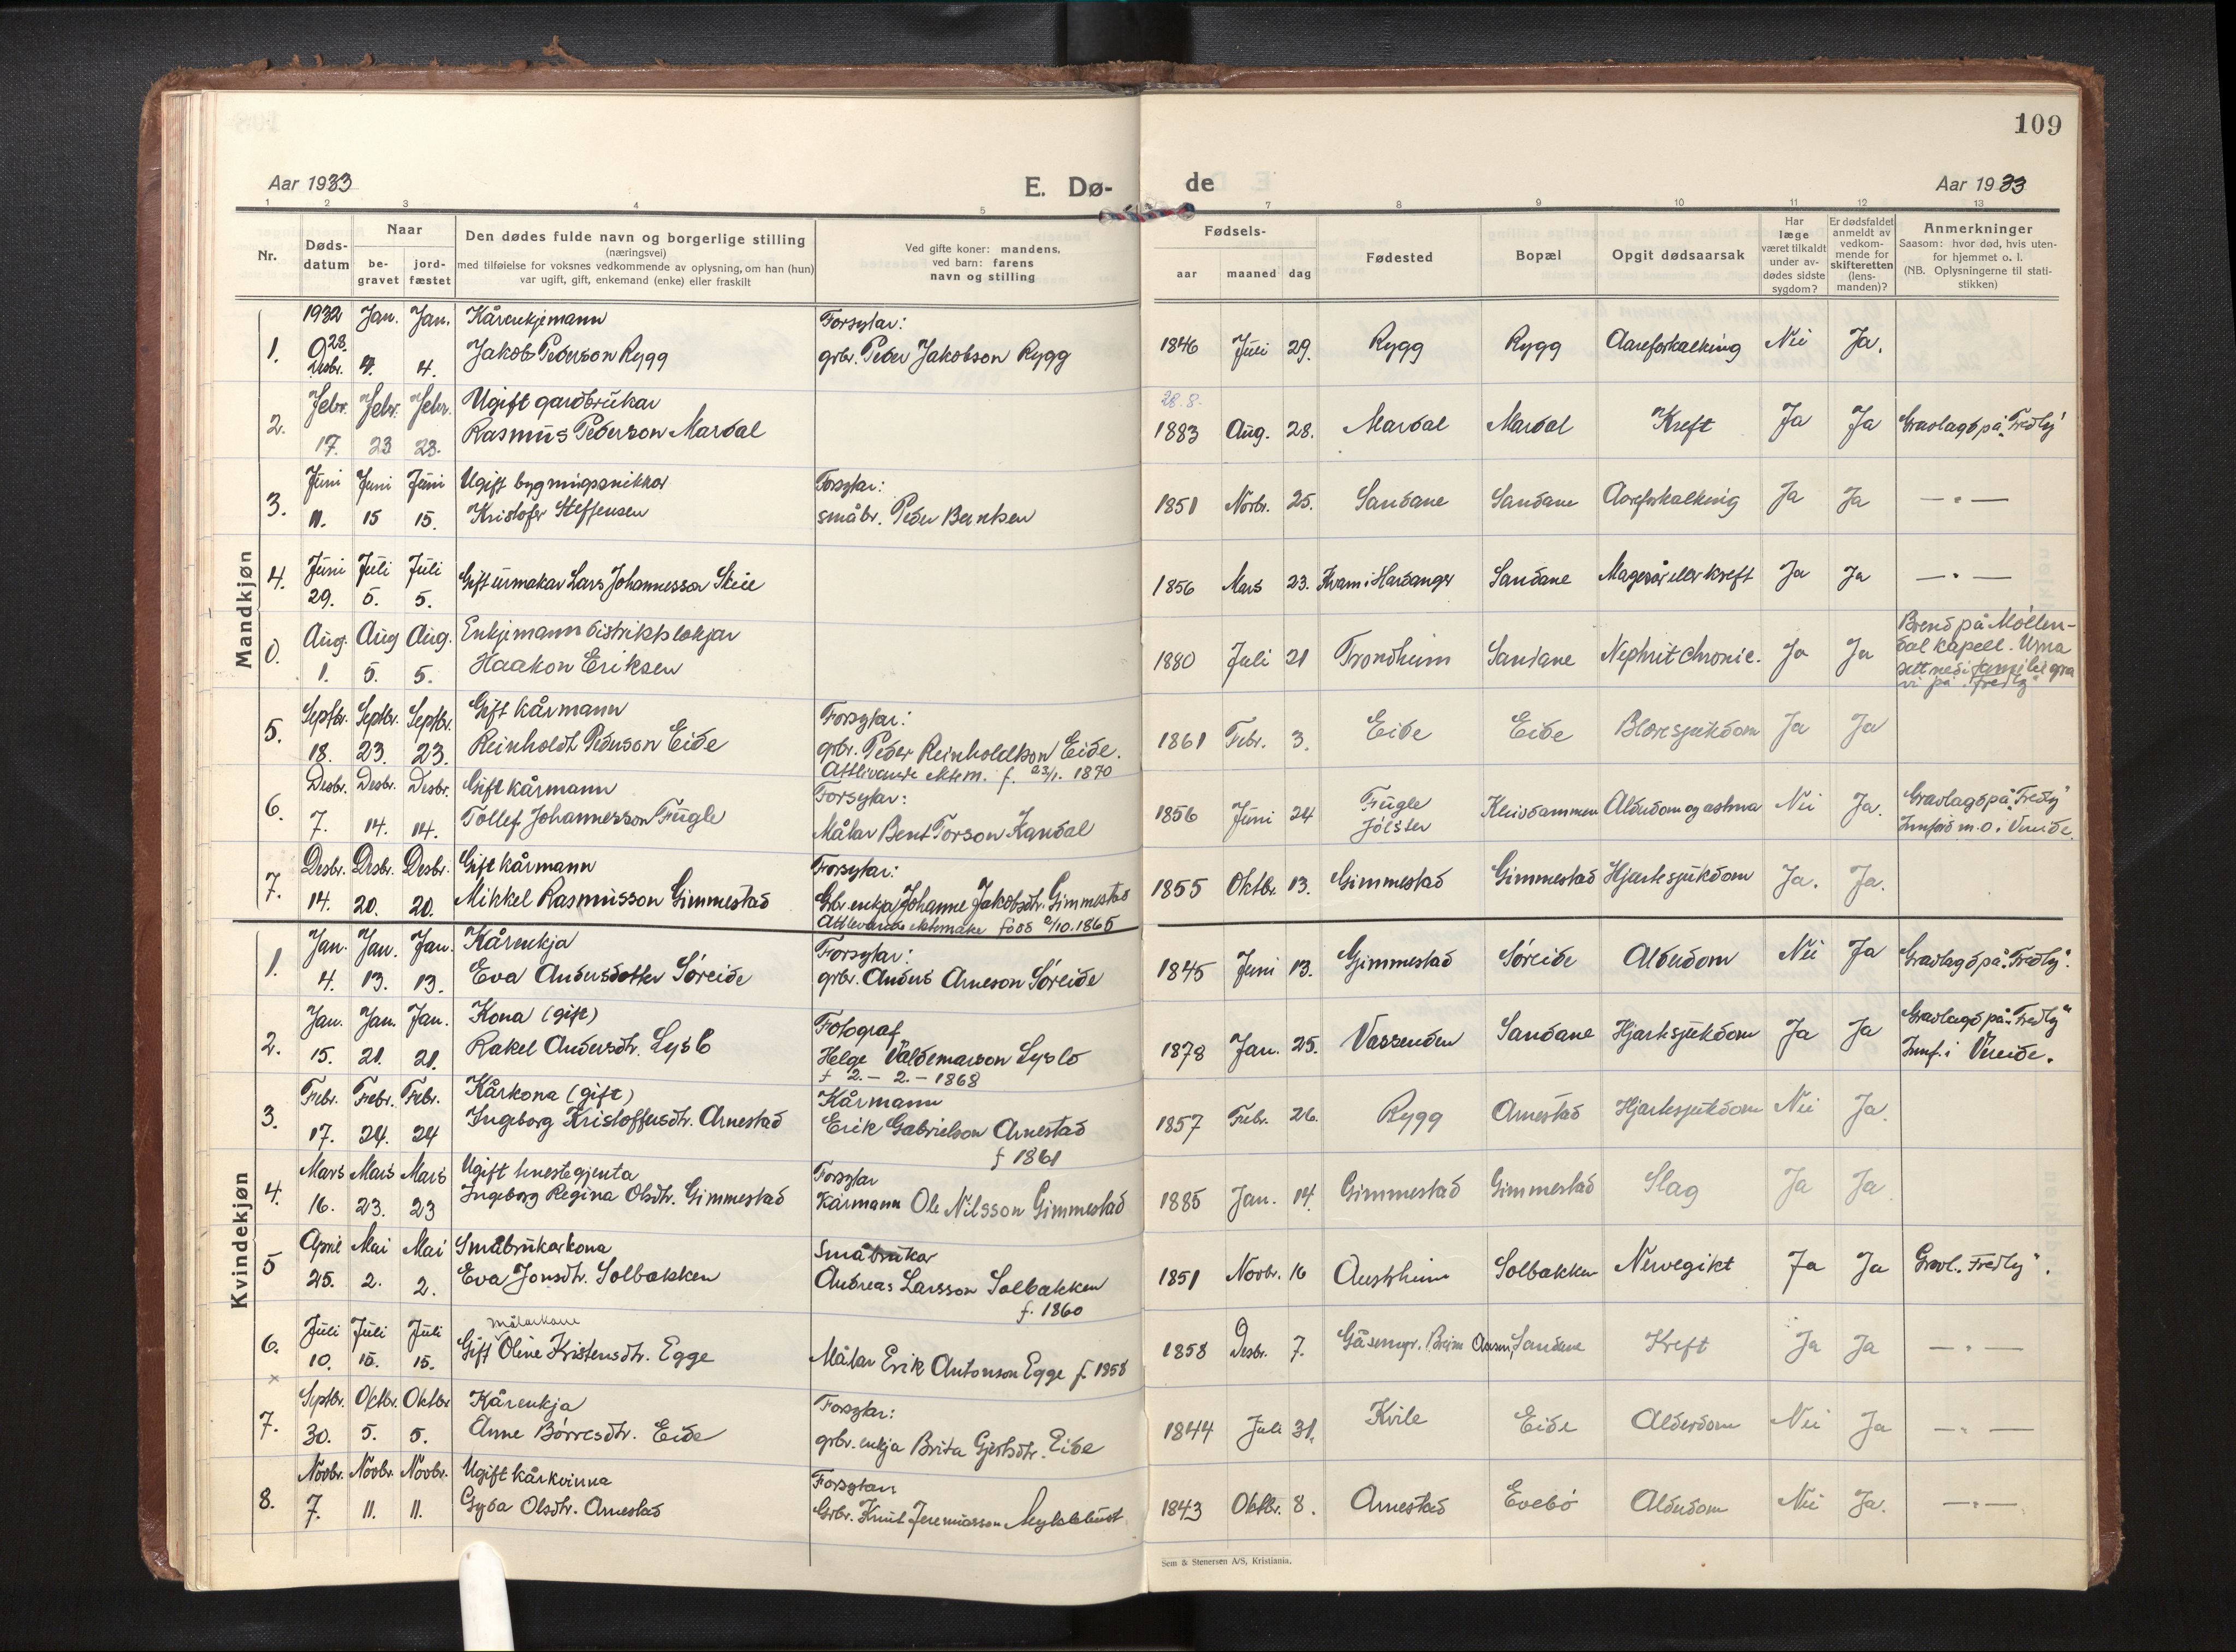 109
Aar 1933
E. Dø-
de
Aar 1933
1 2 3 4 5 7 8 9 10 11 12 13
Nr.
Døds-
datum
Naar
be-
gravet
jord-
fæstet
Den dødes fulde navn og borgerlige stilling
(næringsvei)
med tilføielse for voksnes vedkommende av oplysning, om han (hun)
var ugift, gift, enkemand (enke) eller fraskilt
Ved gifte koner: mandens,
ved barn: farens
navn og stilling
Fødsels-
aar maaned dag
Fødested
Bopæl
Opgit dødsaarsak
Har
læge
været tilkaldt
under av-
dødes sidste
sygdom?
Er dødsfaldet
anmeldt av
vedkom-
mende for
skifteretten
(lens-
manden)?
Anmerkninger
Saasom: hvor død, hvis uten-
for hjemmet o. l.
(NB. Oplysningerne til stati-
stikken)
Mandkjøn
1932 Jan. Jan. Kårenkjemann Forsytar:
1. 28. Desbr. 4. 4. Jakob Pederson Rygg grbr. Peder Jakobson Rygg 1846 Juli 29. Rygg Rygg Aareforkalking Nei Ja.
Febr. Febr. Febr. Ugift gardbrukar 28.8.
2. 17. 23 23. Rasmus Pederson Mardal 1883 Aug. 28. Mardal Mardal Kreft Ja Ja Gravlagd på "Fredly"
Juni Juni Juni Ugift bygningssnikkar Forsytar:
3. 11. 15 15. Kristofer Steffensen småbr. Peder Berntsen 1851 Novbr. 25. Sandane Sandane Aareforkalking Ja Ja — " —
Juni Juli Juli
4. 29. 5. 5. Gift urmakar Lars Johannesson Skeie 1856 Mars 23. Kvam i Hardanger Sandane Magesår eller kreft Ja Ja — " —
Aug. Aug Aug. Enkjemann distriktslækjar
0. 1. 5. 5. Haakon Eriksen 1880 Juli 21 Trondheim Sandane Nephrit chronic. Ja Ja Brend på Møllen-
dal kapell. Urna
sett ned i familiegra
vi på "Fredly"
Septbr. Septbr. Septbr. Gift kårmann Forsytar:
5. 18. 23. 23. Reinholdt Pederson Eide grbr. Peder Reinholdtson Eide. 1861 Febr. 3. Eide Eide Blæresjukdom Ja Ja
Attlivande ektem. f. 23/1. 1870
Desbr. Desbr. Desbr. Gift kårmann Forsytar:
6. 7. 14. 14. Tollef Johannesson Fugle Målar Bent Torson Kandal 1856 Juni 24 Fugle Jølster Kleivdammen Alderdom og astma Nei Ja. Gravlagd på "Fredly"
Innførd m.o. i Vereide.
Desbr. Desbr. Desbr. Gift kårmann Forsytar:
7. 14. 20. 20. Mikkel Rasmusson Gimmestad Gbr. enkja Johanne Jakobsdtr. Gimmestad 1855 Oktbr. 13. Gimmestad Gimmestad Hjartesjukdom Ja. Ja.
Attlevande ektemake fødd 2/10.1865
Kvindekjøn
Jan. Jan. Jan. Kårenkja Forsytar:
1. 4. 13. 13. Eva Andersdotter Søreide grbr. Anders Arneson Søreide 1845 Juni 13. Gimmestad Søreide Alderdom Nei Ja Gravlagd på "Fredly".
Jan. Jan. Jan. Kona (gift) Fotograf
2. 15. 21. 21. Rakel Andersdtr. Lyslo Helge Valdemarson Lyslo 1878 Jan. 25. Vassenden Sandane Hjartesjukdom Ja Ja Gravlagd på "Fredly"
Innf. i Vereide.
f 2. – 2. – 1868
Febr. Febr. Febr. Kårkona (gift) Kårmann
3. 17. 24. 24 Ingeborg Kristoffersdtr. Arnestad Erik Gabrielson Arnestad 1857 Febr. 26. Rygg Arnestad Hjartesjukdom Nei Ja.
f 1861
Mars Mars Mars Ugift tenestegjenta Forsytar
4. 16. 23. 23 Ingeborg Regina Olsdtr. Gimmestad Kårmann Ole Nilsson Gimmestad 1885 Jan. 14. Gimmestad Gimmestad Slag Ja Ja
April Mai Mai Småbrukarkona Småbrukar
5 25. 2. 2. Eva Jonsdtr. Solbakken Andreas Larsson Solbakken 1851 Novbr. 16 Austrheim Solbakken Nervegikt Ja Ja Gravl. "Fredly".
f. 1860
Juli Juli Juli målarkone
6. 10. 15. 15. Gift Oline Kristensdtr. Egge Målar Erik Antonson Egge f. 1858 1858 Desbr. 7. Gåsemyr. Breim Sandane Kreft Ja Ja — " —
x
Septbr. Oktbr. Oktbr Kårenkja Forsytar:
7. 30. 5. 5. Anne Børresdtr. Eide grbr. enkja Brita Gjertsdtr. Eide 1844 Juli 31. Kvile Eide Alderdom Nei Ja — " —
Novbr. Novbr. Novbr. Ugift kårkvinna Forsytar
8. 7. 11. 11. Gyda Olsdtr. Arnestad Grbr. Knut Jeremiasson Myklebust 1843 Oktbr. 8. Arnestad Evebø Alderdom Nei Ja. — " —
Sem & Stenersen A/S, Kristiania.